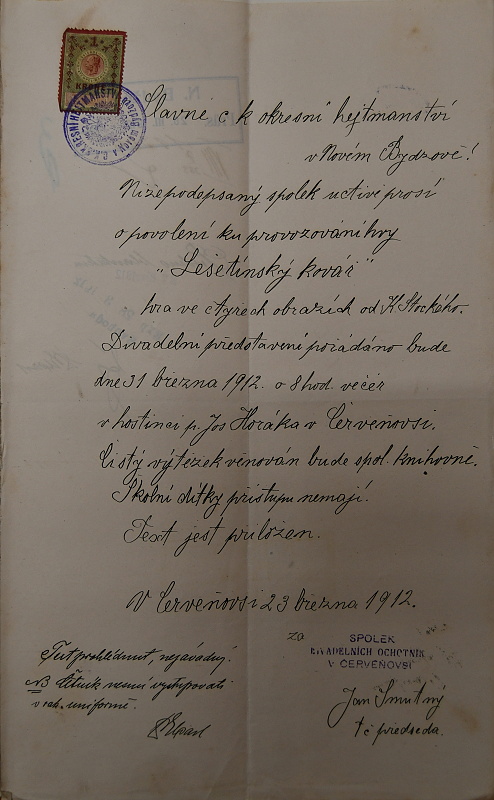 Slavné c k okresní hejtmanství
v Novém Bydžově!
Nížepodepsaný spolek uctivě prosí
o povolení ku provozování hry
"Lešetínský kovář"
hra ve čtyrech obrazích od K. Stockého.
Divadelní představení pořádáno bude
dne 31 března 1912. o 8 hod. večer
v hostinci p. Jos Horáka v Červeňovsi.
Čistý výtěžek věnován bude spol. knihovně.
Školní dítky přístupu nemají.
Text jest přiložen.
V Červeňovsi 23 března 1912.
za
SPOLEK
DIVADELNÍCH OCHOTNÍK
V ČERVEŇOVSI
Jan Smutný
t č předseda.
Text prohlédnut, nezávadný.
NB nesmí vystupovati
v rak. uniformě.